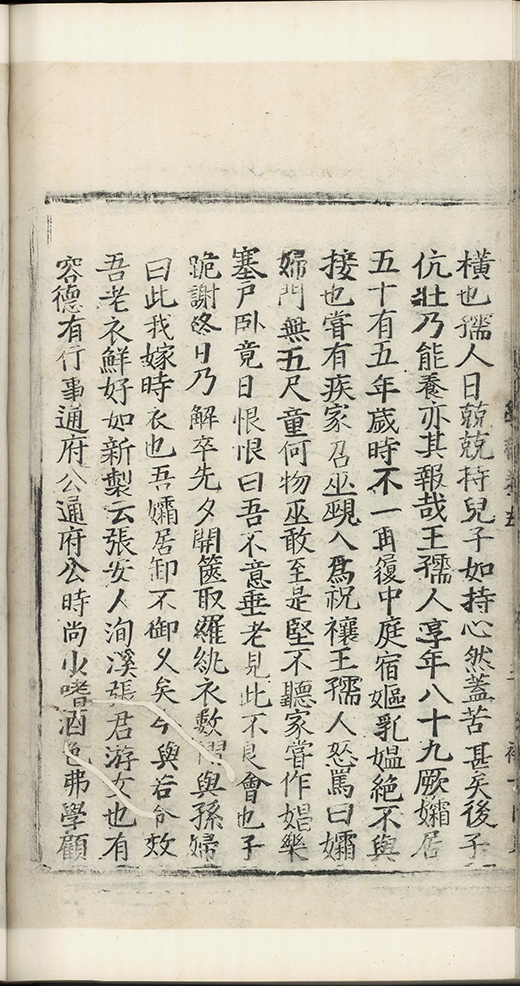 橫也孺人日兢兢持兒子如持心然蓋苦甚矣後子
伉壯乃能養亦其報哉王孺人享年八十九厥孀居
五十有五年歲時不一再復中庭宿嫗乳媪絕不與
接也嘗有疾家召巫覡入爲祝禳王孺人怒罵曰孀
婦門無五尺童何物巫敢至是堅不聽家嘗作娼樂
塞戶臥竟日恨恨曰吾不意垂老見此不良會也子
跪謝終日乃解卒先夕開篋取羅紈衣數襲與孫婦
曰此我嫁時衣也吾孀居卸不御久矣今與若令效
吾老衣鮮好如新製云張安人洵溪張君游女也有
容德有行事通府公通府公時尚少嗜酒色弗學顧